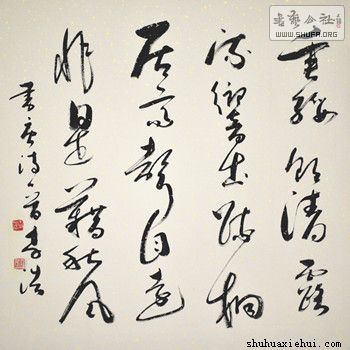 書藝公社
WWW.SHUFA.ORG
垂緌飲清露
流響出疏桐
居高聲自遠
非是藉秋風
書唐詩一首李浩
shuhuaxiehui.com